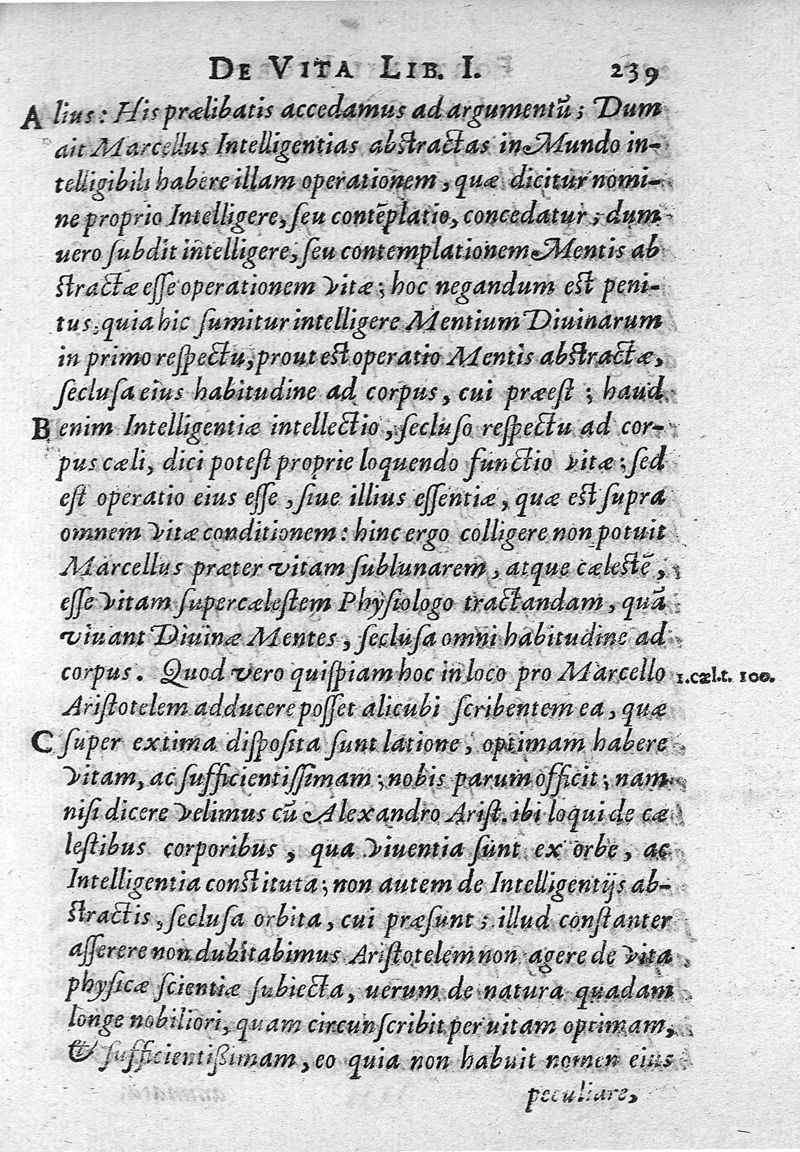 DE VITA LIB. I. 239
A lius: His prælibatis accedamus ad argumentū; Dum
ait Marcellus Intelligentias abstractas in Mundo in-
telligibili habere illam operationem, quæ dicitur nomi-
ne proprio Intelligere, seu contēplatio, concedatur; dum
uero subdit intelligere, seu contemplationem Mentis ab
stractæ esse operationem vitæ; hoc negandum est peni-
tus, quia hic sumitur intelligere Mentium Diuinarum
in primo respectu, prout est operatio Mentis abstractæ,
seclusa eius habitudine ad corpus, cui præest; haud
B enim Intelligentiæ intellectio, secluso respectu ad cor-
pus cæli, dici potest proprie loquendo functio vitæ; sed
est operatio eius esse, siue illius essentiæ, quæ est supra
omnem vitæ conditionem: hinc ergo colligere non potuit
Marcellus præter vitam sublunarem, atque cælestē,
esse vitam supercælestem Physiologo tractandam, quā
viuant Diuinæ Mentes, seclusa omni habitudine ad
corpus. Quod vero quispiam hoc in loco pro Marcello 1.cæl.t. 100.
Aristotelem adducere posset alicubi scribentem ea, quæ
C super extima disposita sunt latione, optimam habere
vitam, ac sufficientissimam; nobis parum officit; nam
nisi dicere velimus cū Alexandro Arist. ibi loqui de cæ
lestibus corporibus, qua viuentia sunt ex orbe, ac
Intelligentia constituta; non autem de Intelligentijs ab-
stractis, seclusa orbita, cui præsunt; illud constanter
asserere non dubitabimus Aristotelem non agere de vita
physicæ scientiæ subiecta, uerum de natura quadam
longe nobiliori, quam circunscribit per uitam optimam,
& sufficientissimam, eo quia non habuit nomen eius
peculiare,